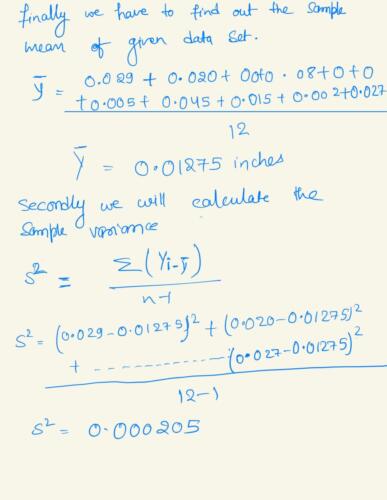 finally we have to find out the Sample
mean of given data set.
ȳ = 0.029 + 0.020 + 00+0 · 08+0+0
+0.005+ 0.045+0.015+0.002+0.027
12
ȳ = 0.01275 inches
Secondly we will calculate the
Sample variance
S² = Σ(Yi-ȳ)
n-1
S² = (0.029-0.01275)² + (0.020-0.01275)²
+ ............(0.027-0.01275)²
12-1
S² = 0.000205